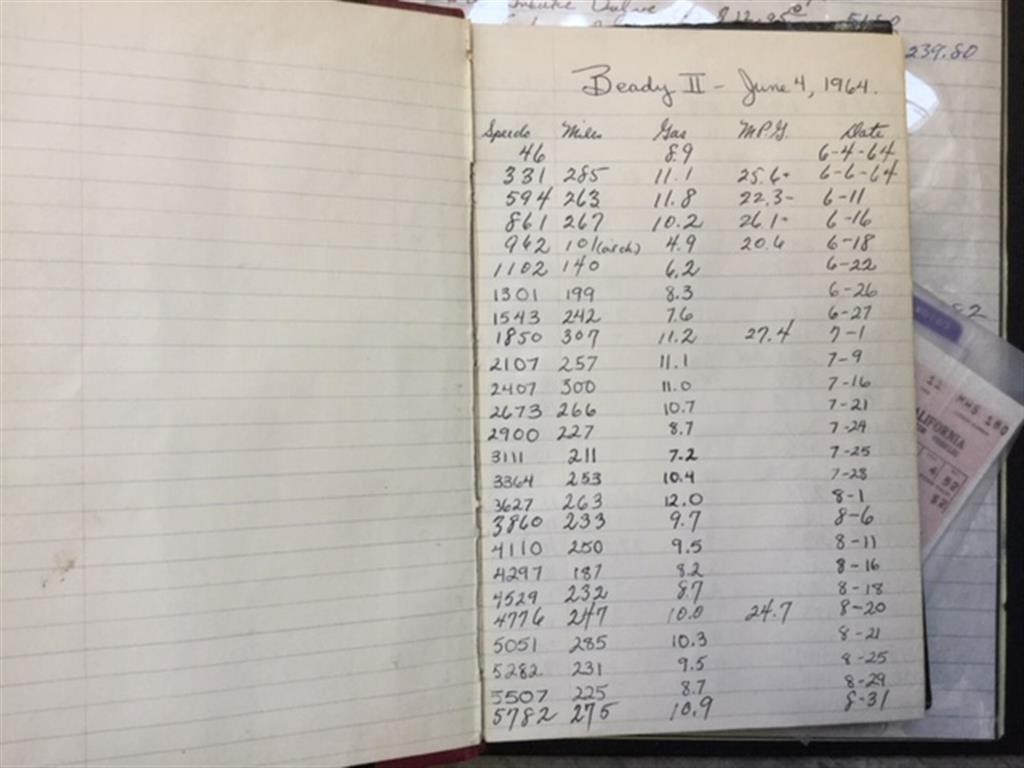 Intake Valve
239.80
Beady II - June 4, 1964.
Speedo Miles Gas M.P.G. Date
46 8.9 6-4-64
331 285 11.1 25.6- 6-6-64
594 263 11.8 22.3- 6-11
861 267 10.2 26.1- 6-16
962 101 4.9 20.6 6-18
1102 140 6.2 6-22
1301 199 8.3 6-26
1543 242 7.6 6-27
1850 307 11.2 27.4 7-1
2107 257 11.1 7-9
2407 300 11.0 7-16
2673 266 10.7 7-21
2900 227 8.7 7-24
3111 211 7.2 7-25
3364 253 10.4 7-28
3627 263 12.0 8-1
3860 233 9.7 8-6
4110 250 9.5 8-11
4297 187 8.2 8-16
4529 232 8.7 8-18
4776 247 10.0 24.7 8-20
5051 285 10.3 8-21
5282 231 9.5 8-25
5507 225 8.7 8-29
5782 275 10.9 8-31
12 MHS 180
CALIFORNIA